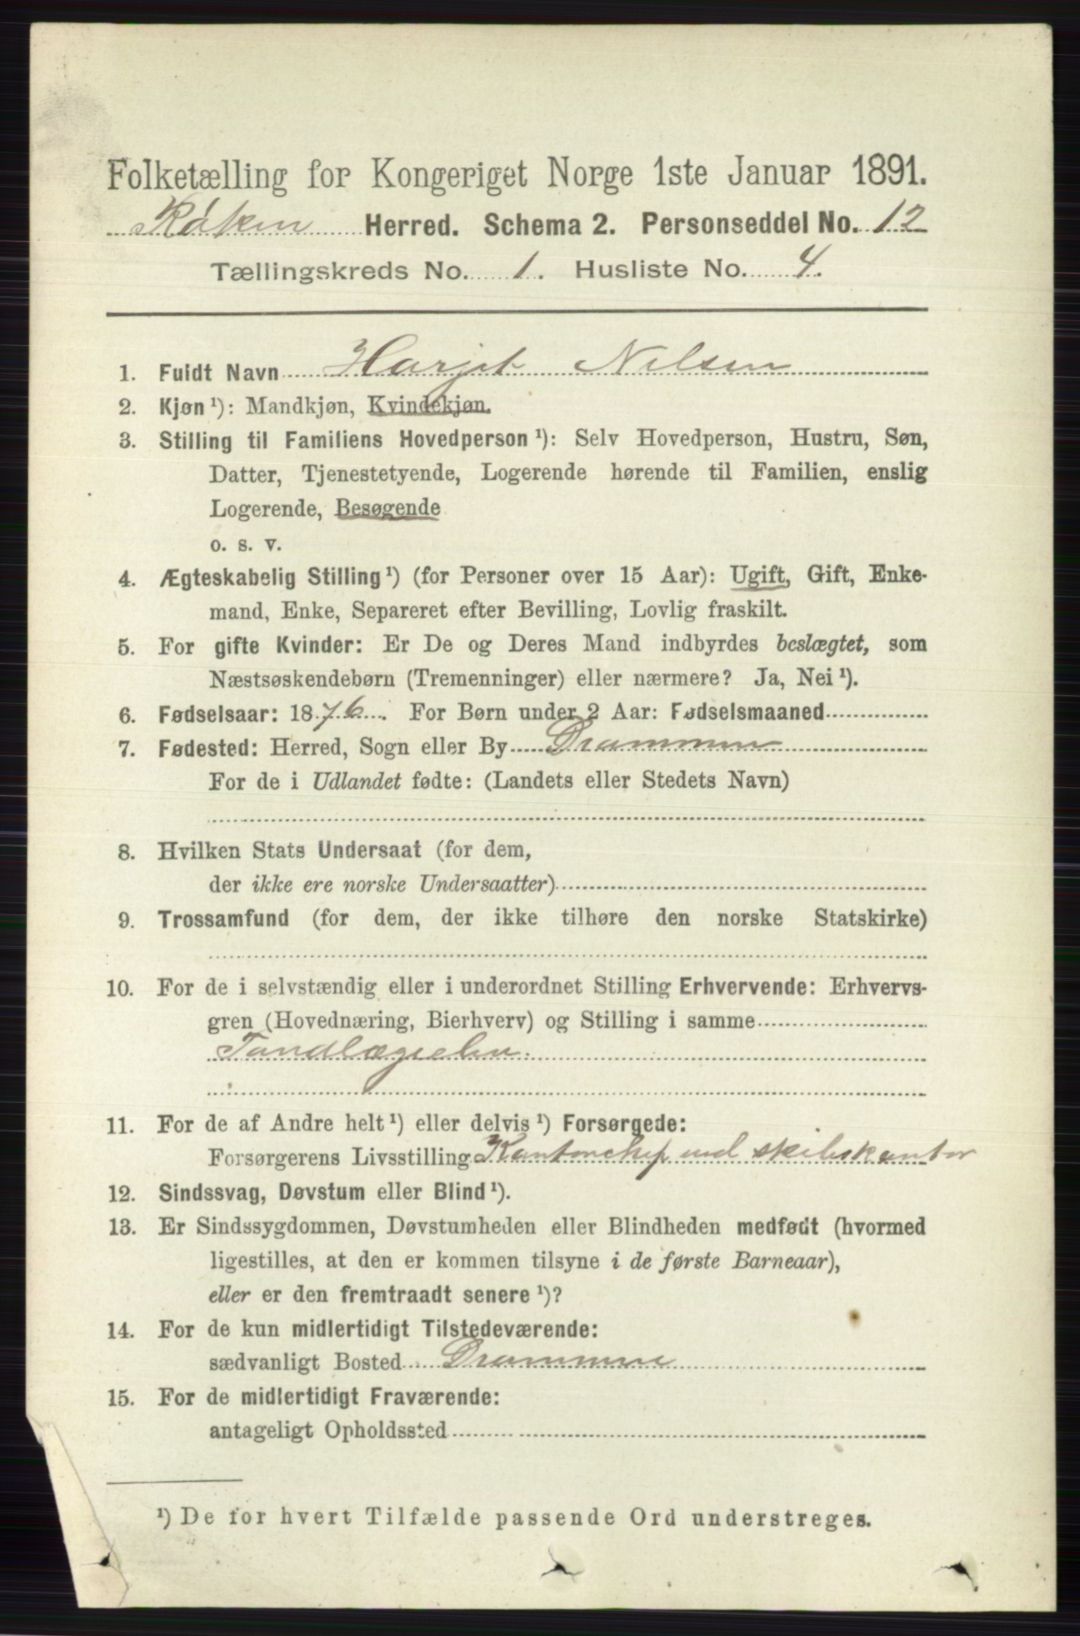 Folketælling for Kongeriget Norge 1ste Januar 1891.
Røken Herred. Schema 2. Personseddel No. 12
Tællingskreds No. 1. Husliste No. 4.
1. Fuldt Navn Nilsen
2. Kjøn ¹): Mandkjøn, Kvindekjøn.
3. Stilling til Familiens Hovedperson ¹): Selv Hovedperson, Hustru, Søn,
Datter, Tjenestetyende, Logerende hørende til Familien, enslig
Logerende, Besøgende
o. s. v.
4. Ægteskabelig Stilling ¹) (for Personer over 15 Aar): Ugift, Gift, Enke-
mand, Enke, Separeret efter Bevilling, Lovlig fraskilt.
5. For gifte Kvinder: Er De og Deres Mand indbyrdes beslægtet, som
Næstsøskendebørn (Tremenninger) eller nærmere? Ja, Nei ¹).
6. Fødselsaar: 1876. For Børn under 2 Aar: Fødselsmaaned
7. Fødested: Herred, Sogn eller By Drammen
For de i Udlandet fødte: (Landets eller Stedets Navn)
8. Hvilken Stats Undersaat (for dem,
der ikke ere norske Undersaatter)
9. Trossamfund (for dem, der ikke tilhøre den norske Statskirke)
10. For de i selvstændig eller i underordnet Stilling Erhvervende: Erhvervs-
gren (Hovednæring, Bierhverv) og Stilling i samme
Tandlægeelev.
11. For de af Andre helt ¹) eller delvis ¹) Forsørgede:
Forsørgerens Livsstilling Kontorchef ved skibskontor
12. Sindssvag, Døvstum eller Blind ¹).
13. Er Sindssygdommen, Døvstumheden eller Blindheden medfødt (hvormed
ligestilles, at den er kommen tilsyne i de første Barneaar),
eller er den fremtraadt senere ¹)?
14. For de kun midlertidigt Tilstedeværende:
sædvanligt Bosted Drammen
15. For de midlertidigt Fraværende:
antageligt Opholdssted
¹) De for hvert Tilfælde passende Ord understreges.